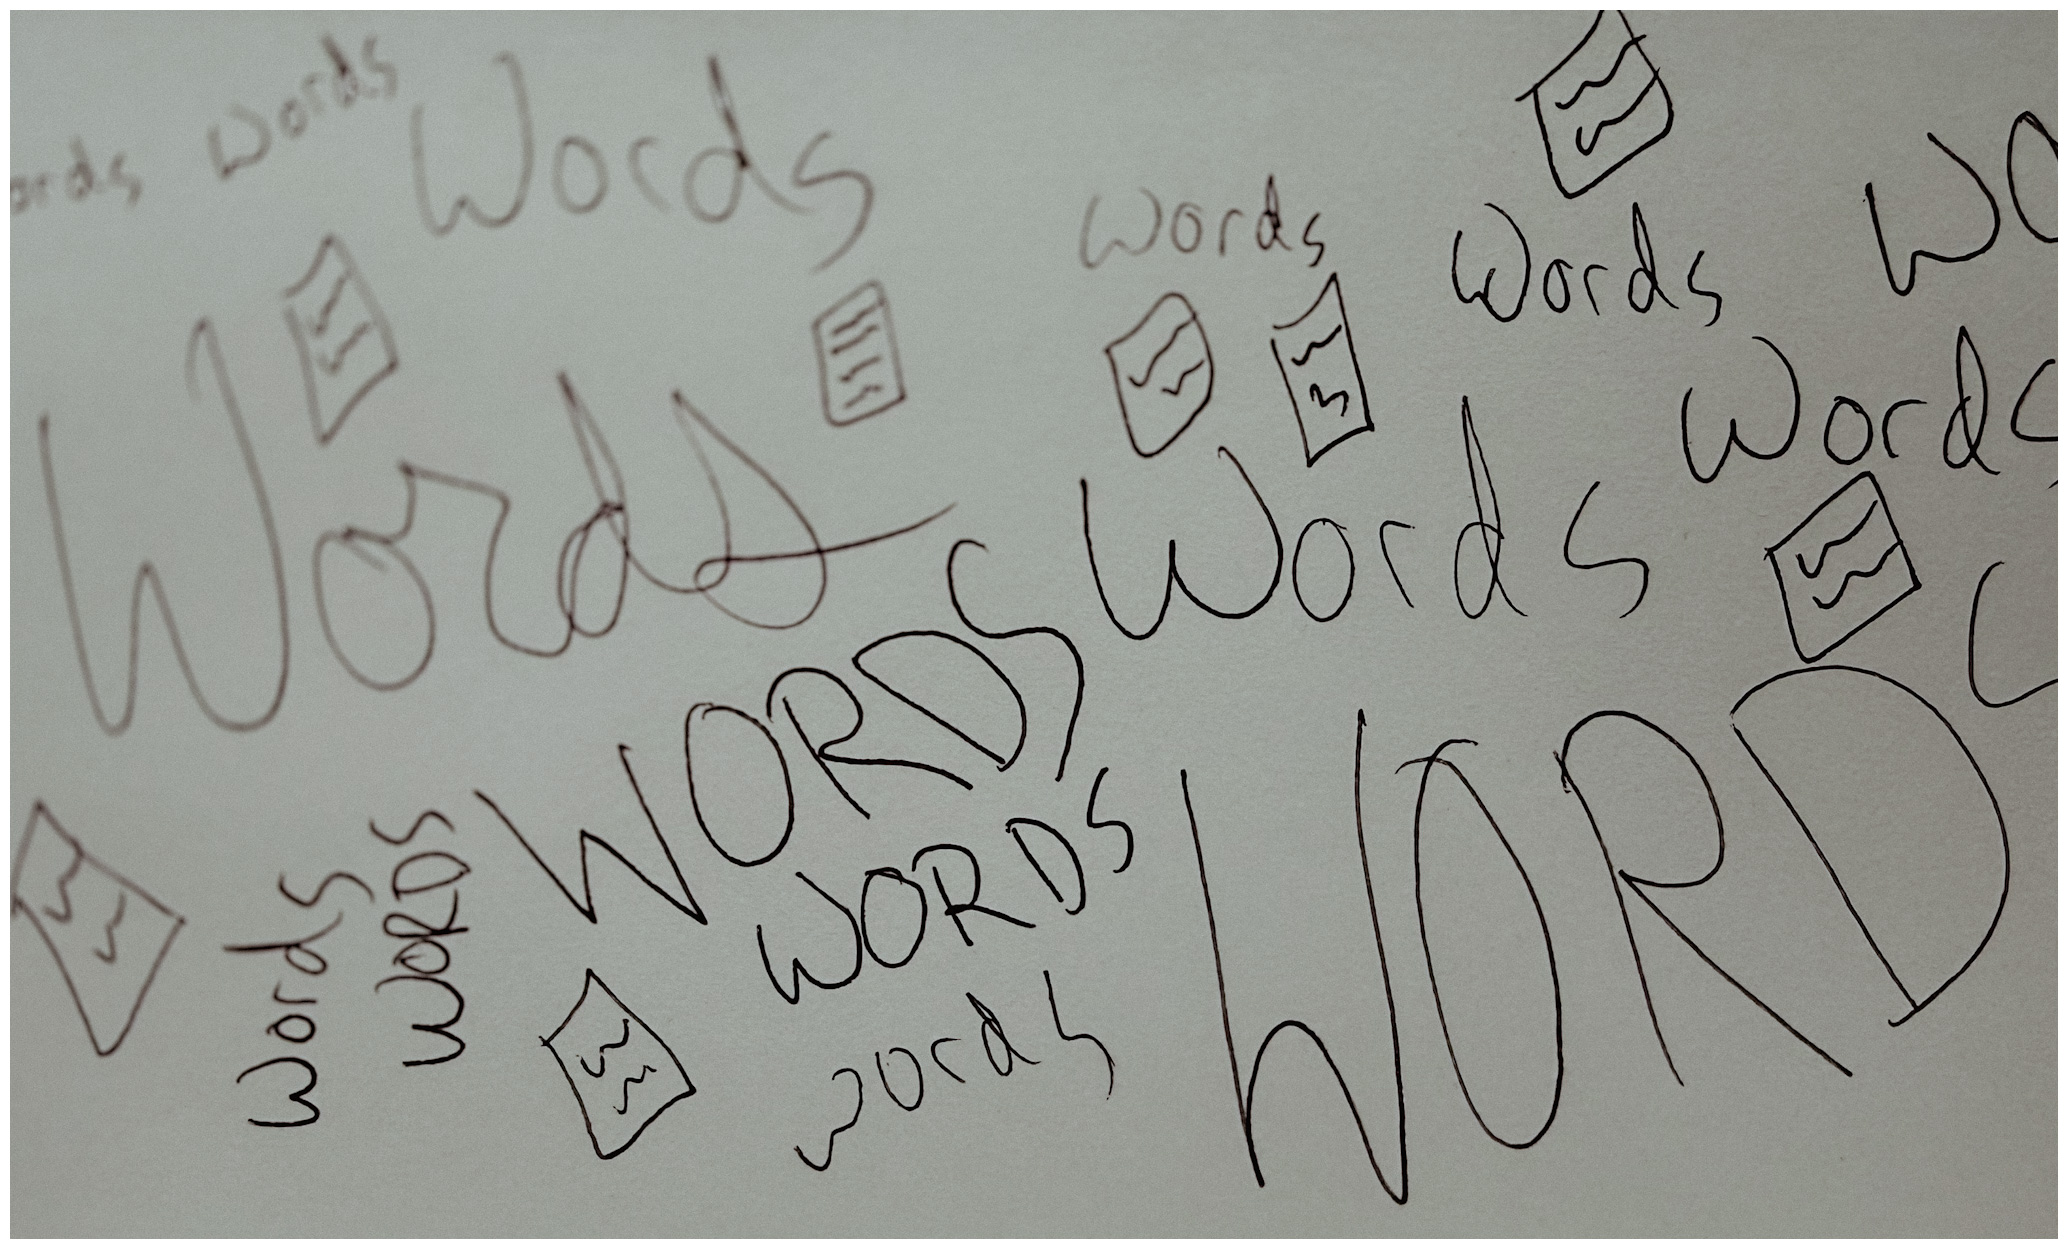 ords
words
Words
words
Words
Wo
Words
Words
Words
WORDS
WORDS
WORDS
words
words
WORDS